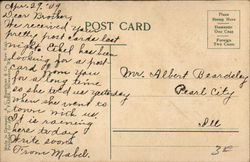 Apr. 29, '09
Dear Brother,
We received your
pretty post cards last
night. Ethel has been
looking for a post
card from you
for a long time
so she told us yesterday
when she went to
town with us.
It is raining
here today
Write soon
From Mabel.
POST CARD
Place
Stamp Here
Domestic
One Cent
Foreign
Two Cents
Mr. Albert Beardsley
Pearl City
Ill